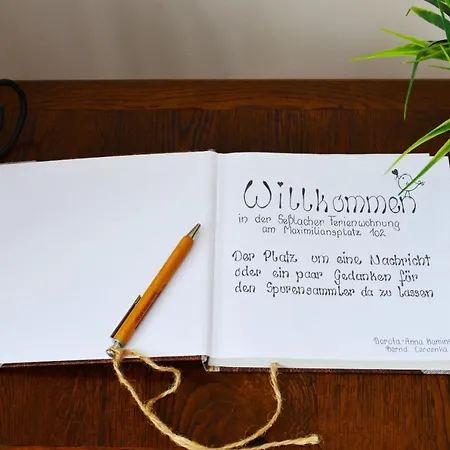 Willkommen
in der Seßlacher Ferienwohnung
am Maximiliansplatz 102
Der Platz um eine Nachricht
oder ein paar Gedanken für
den Spurensammler da zu lassen
Dorota-Anna
Bernd